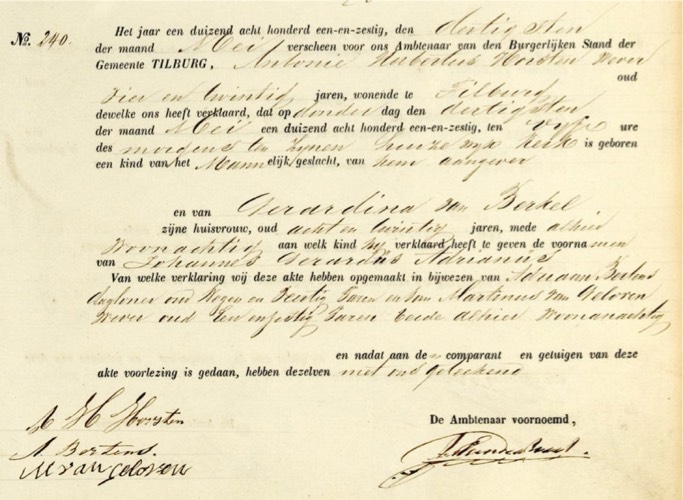 No. 240.
Het jaar een duizend acht honderd een-en-zestig, den dertigsten
der maand Mei verscheen voor ons Ambtenaar van den Burgerlijken Stand der
Gemeente TILBURG, Antonie Hubertus Horsten Wever
oud
Vier en twintig jaren, wonende te Tilburg
dewelke ons heeft verklaard, dat op donder dag den dertigsten
der maand Mei een duizend acht honderd een-en-zestig, ten vyf ure
des morgens ten zynen huize wyk Kerk is geboren
een kind van het Mannelijk geslacht, van hem aangever
en van Gerardina van Berkel
zijne huisvrouw, oud acht en twintig jaren, mede alhier
Woonachtig aan welk kind hy verklaard heeft te geven de voornamen
van Johannes Gerardus Adrianus
Van welke verklaring wij deze akte hebben opgemaakt in bijwezen van Adriaan Bertens
daglooner oud Negen en Veertig Jaren en van Martinus van Geloven
Wever oud Een en Jaren beide alhier Woonachtig
en nadat aan den comparant en getuigen van deze
akte voorlezing is gedaan, hebben dezelven met ons geteekend
A H Horsten
De Ambtenaar voornoemd,
A. Bertens.
M van Geloven